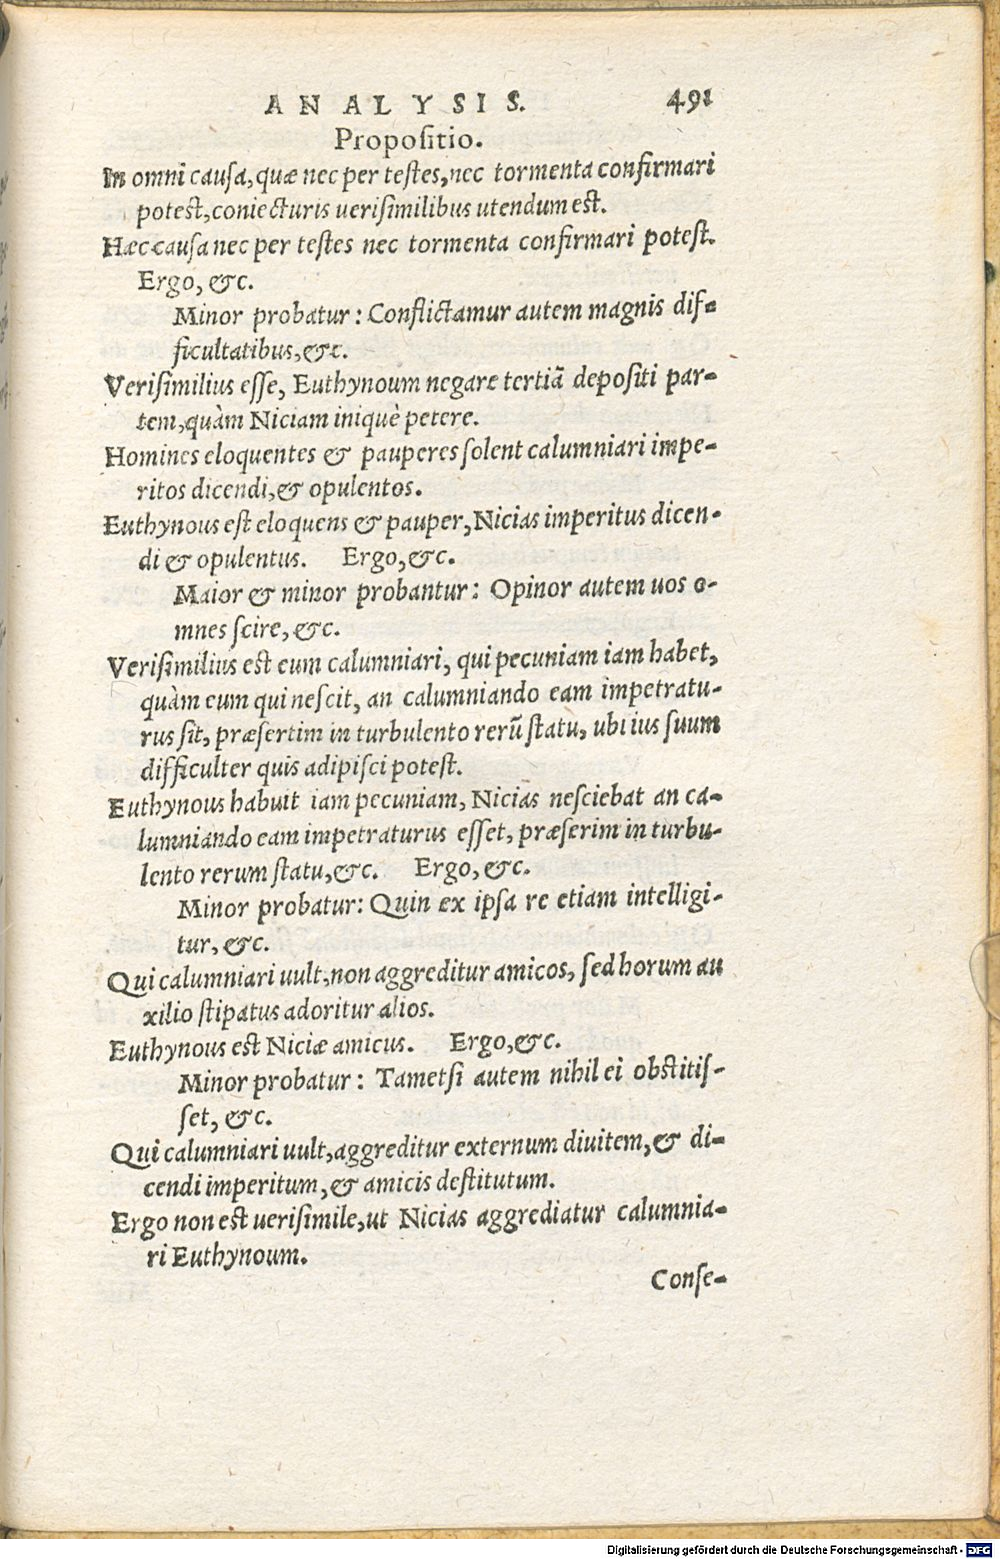 ANALYSIS. 491
Propositio.
In omni causa, quæ nec per testes, nec tormenta confirmari
potest, coniecturis uerisimilibus utendum est.
Hæc causa nec per testes nec tormenta confirmari potest.
Ergo, &c.
Minor probatur: Conflictamur autem magnis dif-
ficultatibus, &c.
Verisimilius esse, Euthynoum negare tertiā depositi par-
tem, quàm Niciam iniquè petere.
Homines eloquentes & pauperes solent calumniari impe-
ritos dicendi, & opulentos.
Euthynous est eloquens & pauper, Nicias imperitus dicen-
di & opulentus. Ergo, &c.
Maior & minor probantur: Opinor autem uos o-
mnes scire, &c.
Verisimilius est eum calumniari, qui pecuniam iam habet,
quàm eum qui nescit, an calumniando eam impetratu-
rus sit, præsertim in turbulento rerū statu, ubi ius suum
difficulter quis adipisci potest.
Euthynous habuit iam pecuniam, Nicias nesciebat an ca-
lumniando eam impetraturus esset, præserim in turbu-
lento rerum statu, &c. Ergo, &c.
Minor probatur: Quin ex ipsa re etiam intelligi-
tur, &c.
Qui calumniari uult, non aggreditur amicos, sed horum au
xilio stipatus adoritur alios.
Euthynous est Niciæ amicus. Ergo, &c.
Minor probatur: Tametsi autem nihil ei obstitis-
set, &c.
Qui calumniari uult, aggreditur externum diuitem, & di-
cendi imperitum, & amicis destitutum.
Ergo non est uerisimile, ut Nicias aggrediatur calumnia-
ri Euthynoum.
Conse-
Digitalisierung gefördert durch die Deutsche Forschungsgemeinschaft - DFG